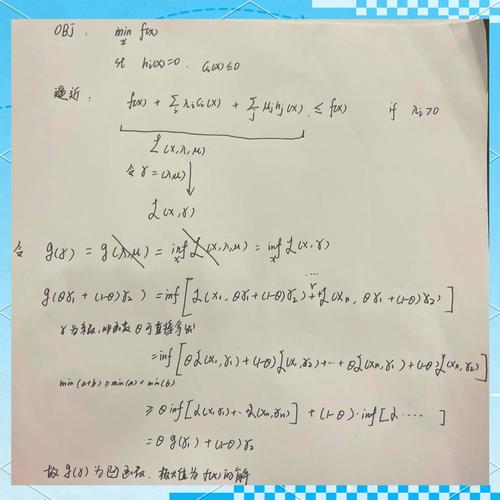 OBJ. min f(x)
x
st hj(x)=0. Ci(x)≤0
逼近: f(x) + Σi λiCi(x) + Σj μjhj(x) ≤ f(x) if λi>0
L(x,λ,μ)
令γ=(λ,μ)
L(x,γ)
令 g(γ) = g(λ,μ) = inf x L(x,λ,μ) = inf x L(x,γ)
g(θγ1+(1-θ)γ2) = inf[L(x1, θγ1+(1-θ)γ2)+…+L(xn, θγ1+(1-θ)γ2)]
γ为系数,
θ可直接拿出!
= inf[θL(x1,γ1)+(1-θ)L(x1,γ2)+…+θL(xn,γ1)+(1-θ)L(xn,γ2)]
min(a+b)≥min(a)+min(b)
≥ θ inf[L(x1,γ1)+…L(xn,γn)] + (1-θ)·inf[L……]
= θg(γ1)+(1-θ)γ2
故g(γ)为凹函数. 极大值为f(x)的解